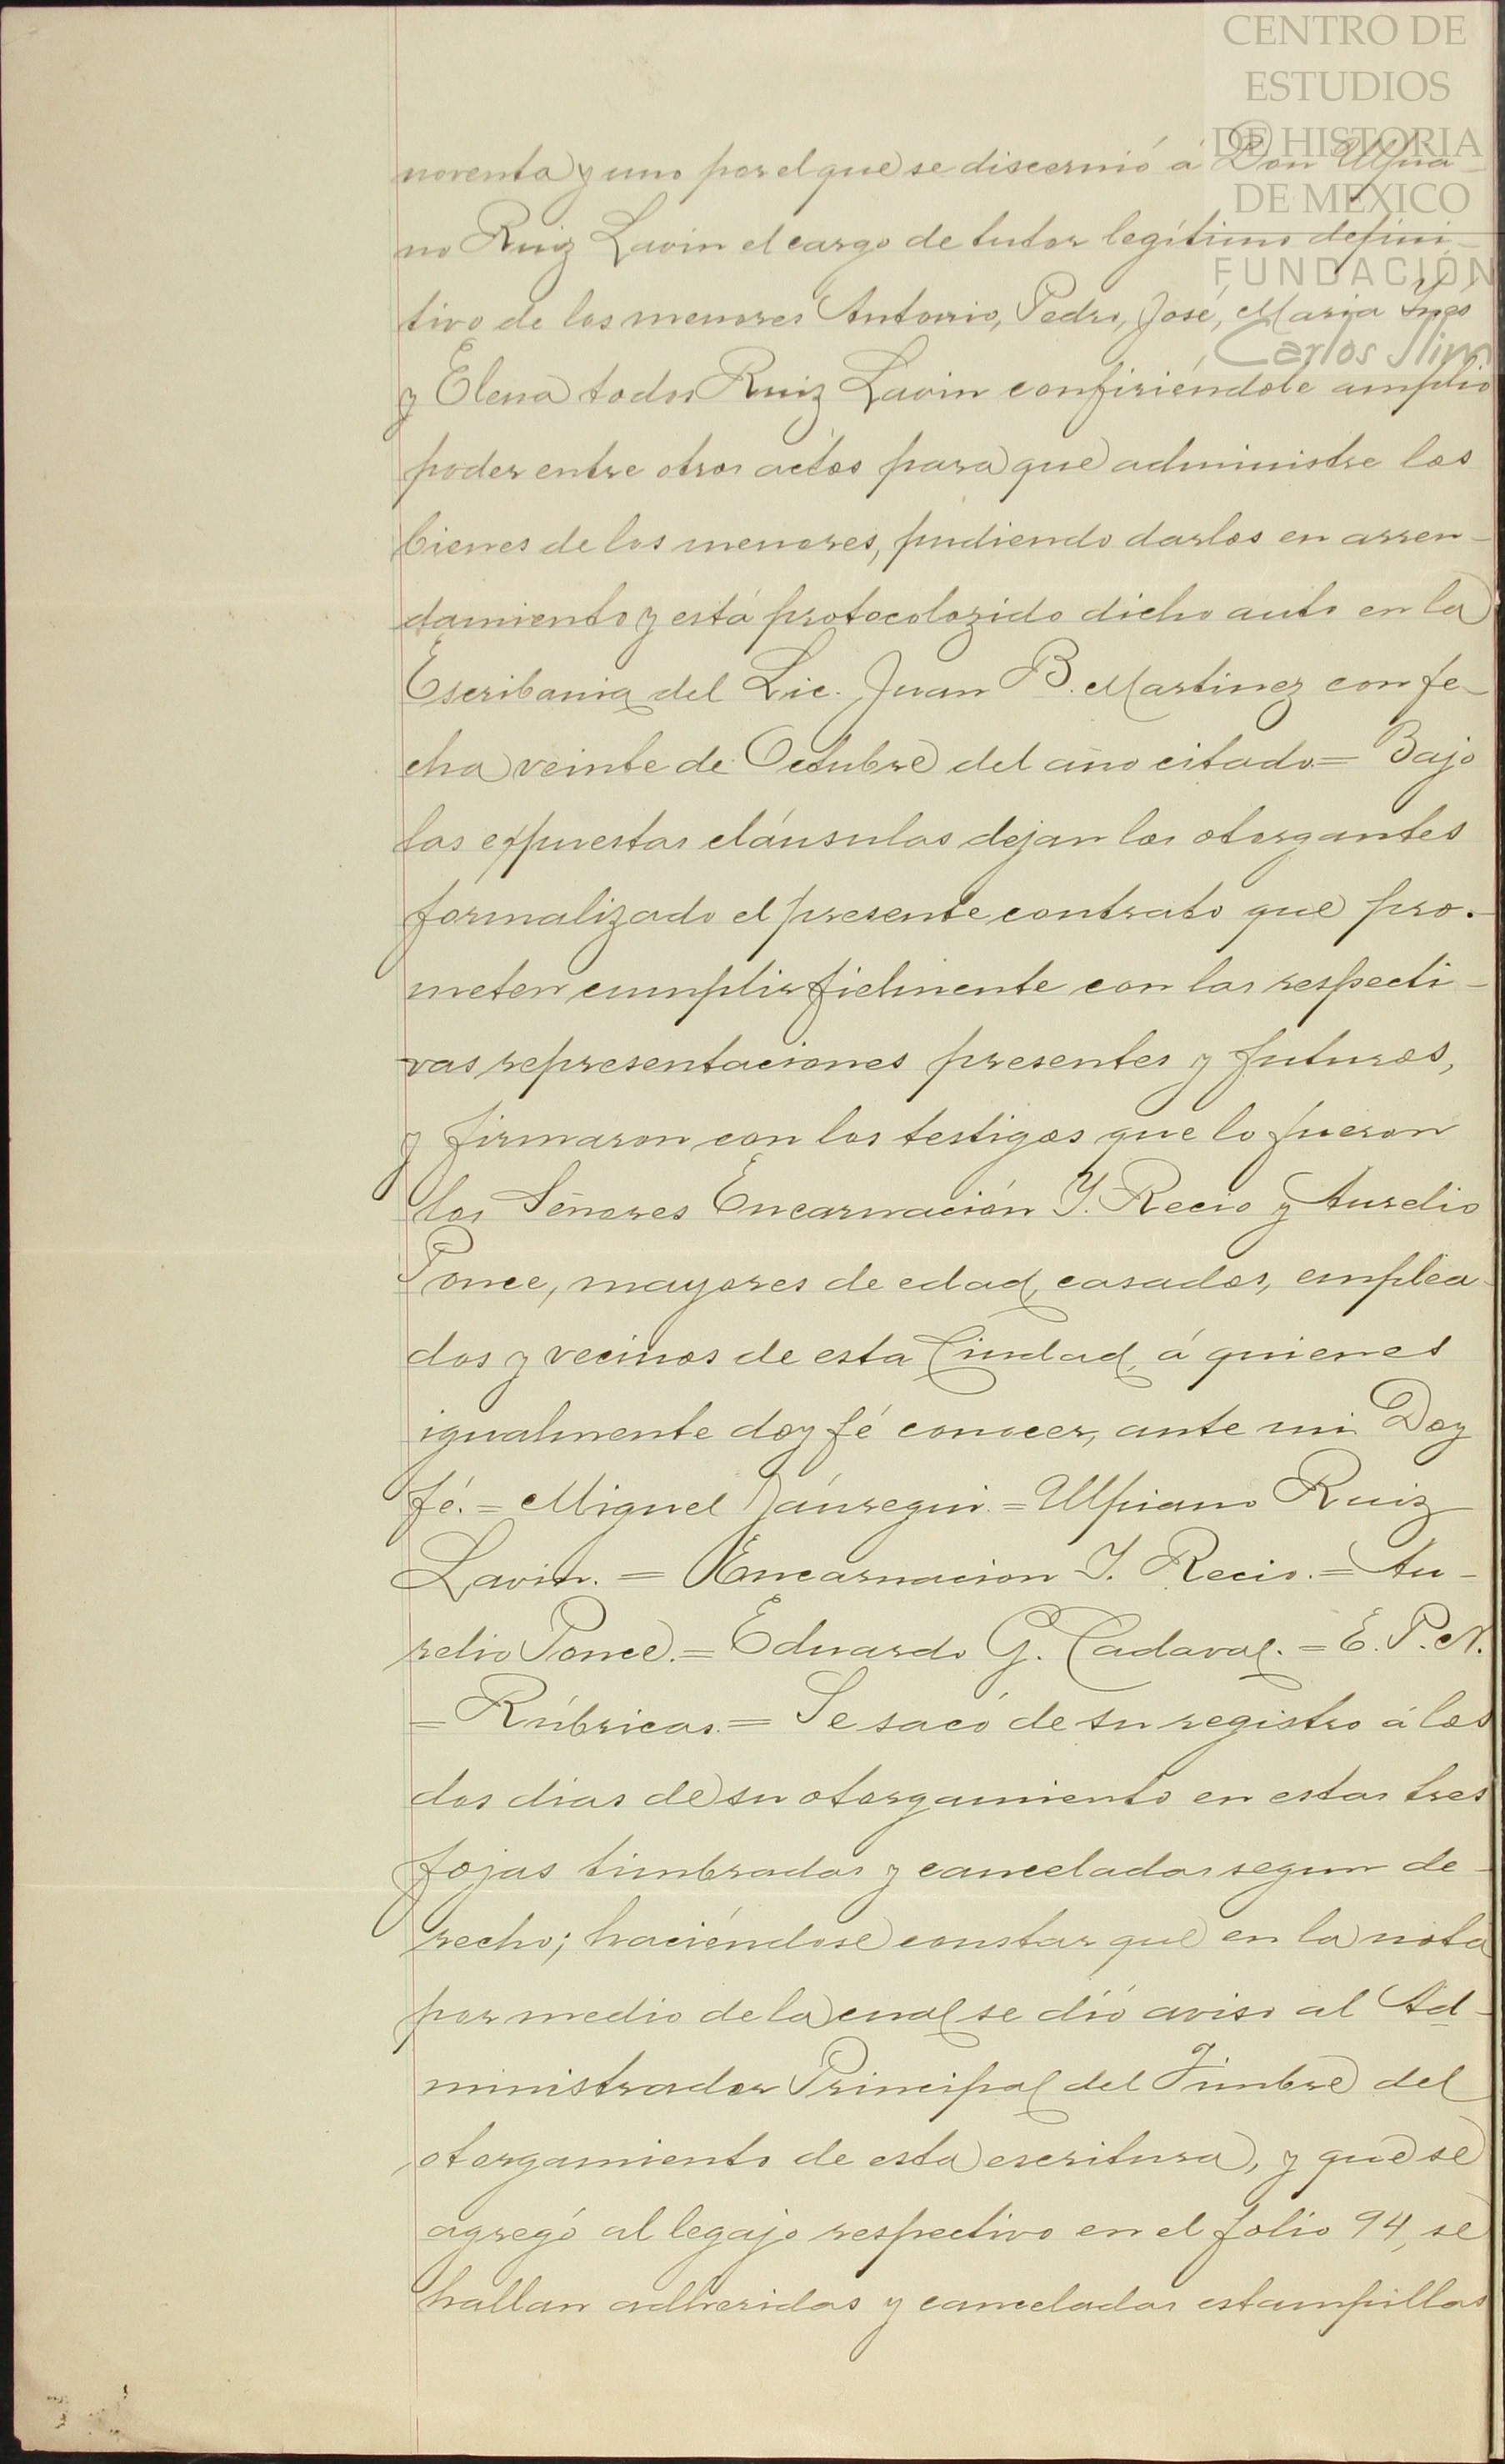 CENTRO DE
ESTUDIOS
DE HISTORIA
DE MEXICO
FUNDACIÓN
Carlos Slim
noventa y uno por el que se discernió á Don Ulpia-
no Ruiz Lavin el cargo de tutor legítimo defini-
tivo de los menores Antonio, Pedro, José, Maria Ynés
y Elena todos Ruiz Lavin confiriéndole amplio
poder entre otros actos para que administre los
bienes de los menores, pudiendo darlos en arren-
damiento y está protocolozido dicho auto en la
Escribania del Lic. Juan B. Martinez con fe-
cha veinte de Octubre del año citado = Bajo
las expuestas cláusulas dejan los otorgantes
formalizado el presente contrato que pro-
meten cumplir fielmente con las respecti-
vas representaciones presentes y futuras,
y firmaron con los testigos que lo fueron
los Señores Encarnación Y. Recio y Aurelio
Ponce, mayores de edad, casados, emplea-
dos y vecinos de esta Ciudad, á quienes
igualmente doy fé conocer, ante mi Doy
fé. = Miguel Jáuregui. = Ulpiano Ruiz
Lavin. = Encarnacion Y. Recio. = Au-
relio Ponce. = Eduardo G. Cadaval. = E. P. N.
= Rúbricas. = Se sacó de su registro á los
dos dias de su otorgamiento en estas tres
fojas timbradas y canceladas segun de-
recho; haciéndose constar que en la nota
por medio de la cual se dió aviso al Ad-
ministrador Principal del Timbre del
otorgamiento de esta escritura, y que se
agregó al legajo respectivo en el folio 94, se
hallan adheridas y canceladas estampillas